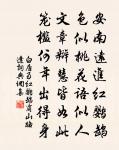 安南遠進紅鸚鵡
色似桃花語似人
文章辯慧皆如此
籠檻何年出得身
白居易紅鸚鵡商山路
逢詞典網集